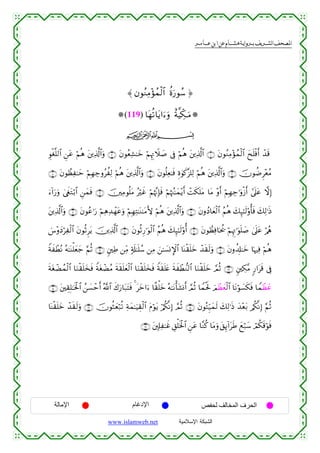 المصحف الشريف برواية هشام عن ابن عامر
﴿ سُورَةُ ٱلْمُؤْمِنُونَ ﴾
مَكِّيَّةٌ وَءَايَاتُهَا (119)
بِسْمِ ٱللَّهِ ٱلرَّحْمَٰنِ ٱلرَّحِيمِ
قَدْ أَفْلَحَ ٱلْمُؤْمِنُونَ ۝ ٱلَّذِينَ هُمْ فِى صَلَاتِهِمْ خَٰشِعُونَ ۝ وَٱلَّذِينَ هُمْ عَنِ ٱللَّغْوِ
مُعْرِضُونَ ۝ وَٱلَّذِينَ هُمْ لِلزَّكَوٰةِ فَٰعِلُونَ ۝ وَٱلَّذِينَ هُمْ لِفُرُوجِهِمْ حَٰفِظُونَ ۝
إِلَّا عَلَىٰٓ أَزْوَٰجِهِمْ أَوْ مَا مَلَكَتْ أَيْمَٰنُهُمْ فَإِنَّهُمْ غَيْرُ مَلُومِينَ ۝ فَمَنِ ٱبْتَغَىٰ وَرَآءَ
ذَٰلِكَ فَأُو۟لَٰٓئِكَ هُمُ ٱلْعَادُونَ ۝ وَٱلَّذِينَ هُمْ لِأَمَٰنَٰتِهِمْ وَعَهْدِهِمْ رَٰعُونَ ۝ وَٱلَّذِينَ
هُمْ عَلَىٰ صَلَوَٰتِهِمْ يُحَافِظُونَ ۝ أُو۟لَٰٓئِكَ هُمُ ٱلْوَٰرِثُونَ ۝ ٱلَّذِينَ يَرِثُونَ ٱلْفِرْدَوْسَ
هُمْ فِيهَا خَٰلِدُونَ ۝ وَلَقَدْ خَلَقْنَا ٱلْإِنسَٰنَ مِن سُلَٰلَةٍ مِّن طِينٍ ۝ ثُمَّ جَعَلْنَٰهُ نُطْفَةً
فِى قَرَارٍ مَّكِينٍ ۝ ثُمَّ خَلَقْنَا ٱلنُّطْفَةَ عَلَقَةً فَخَلَقْنَا ٱلْعَلَقَةَ مُضْغَةً فَخَلَقْنَا ٱلْمُضْغَةَ
عَظْمًا فَكَسَوْنَا ٱلْعَظْمَ لَحْمًا ثُمَّ أَنشَأْنَٰهُ خَلْقًا ءَاخَرَ ۚ فَتَبَارَكَ ٱللَّهُ أَحْسَنُ ٱلْخَٰلِقِينَ ۝
ثُمَّ إِنَّكُم بَعْدَ ذَٰلِكَ لَمَيِّتُونَ ۝ ثُمَّ إِنَّكُمْ يَوْمَ ٱلْقِيَٰمَةِ تُبْعَثُونَ ۝ وَلَقَدْ خَلَقْنَا
فَوْقَكُمْ سَبْعَ طَرَآئِقَ وَمَا كُنَّا عَنِ ٱلْخَلْقِ غَٰفِلِينَ ۝
الحرف المخالف لحفص الإدغام الإمالة
الشبكة الإسلامية www.islamweb.net